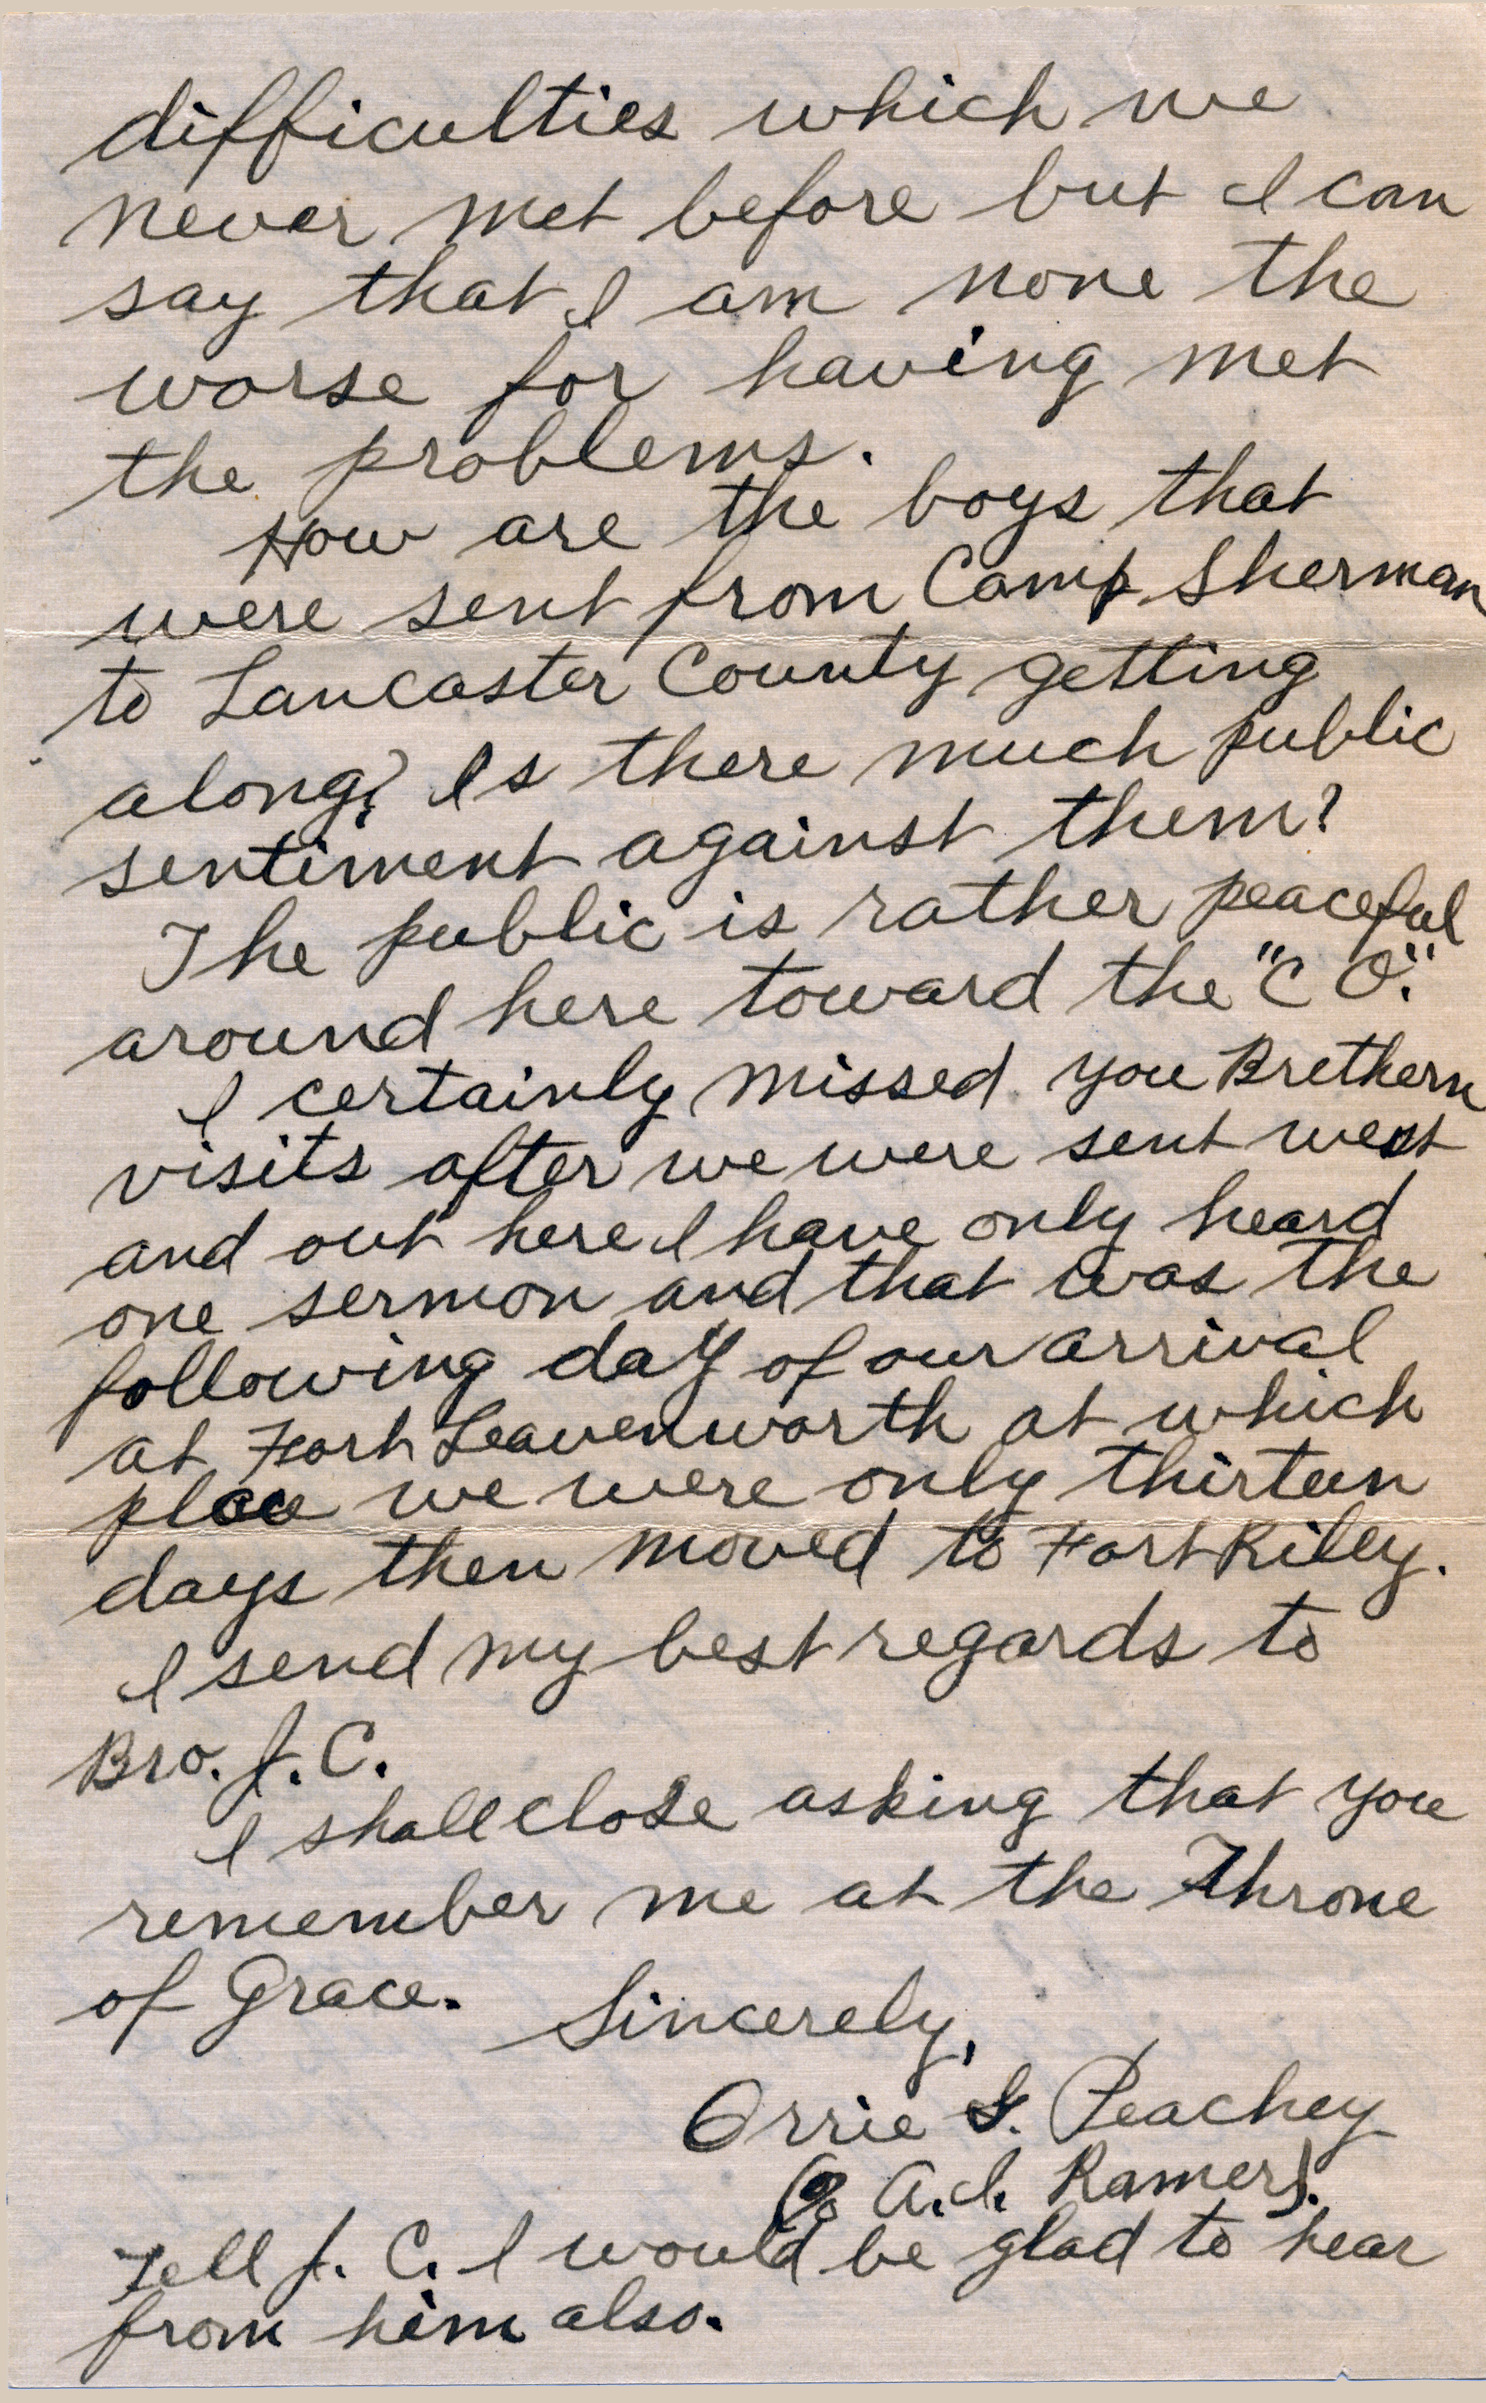 difficulties which we
never met before but I can
say that I am none the
worse for having met
the problems.
How are the boys that
were sent from Camp Sherman
to Lancaster County getting
along? Is there much public
sentiment against them?
The public is rather peaceful
around here toward the "C O."
I certainly missed you Brethern
visits after we were sent west
and out here I have only heard
one sermon and that was the
following day of our arrival
at Fort Leavenworth at which
place we were only thirteen
days then moved to Fort Riley.
I send my best regards to
Bro. J. C.
I shall close asking that you
remember me at the Throne
of Grace.
Sincerely,
Orrie S. Peachey
(% A. I. Ramer).
Tell J. C. I would be glad to hear
from him also.